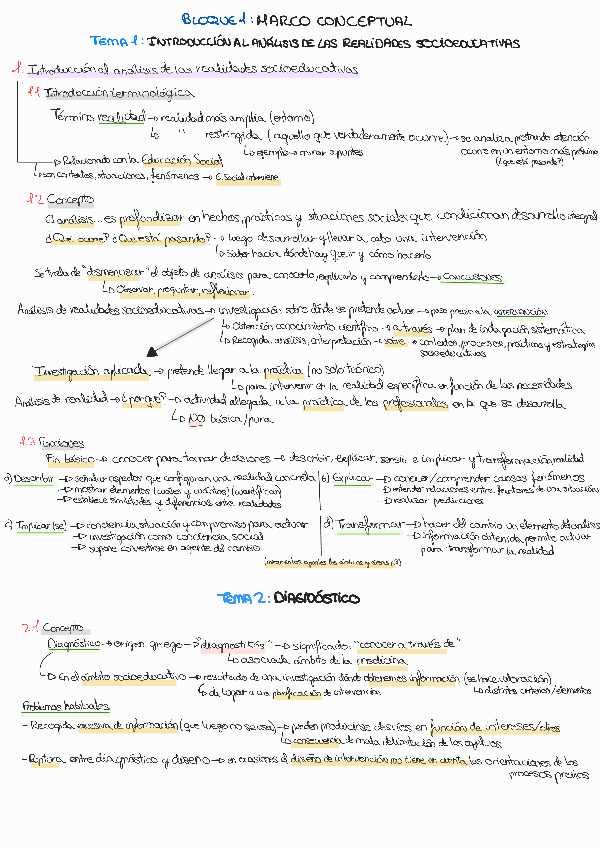 BLOQUE 1: MARCO CONCEPTUAL
TEMA 1: INTRODUCCIÓN AL ANÁLISIS DE LAS REALIDADES SOCIOEDUCATIVAS
1. Introducción al análisis de las realidades socioeducativas
1.1 Introducción terminológica
Término realidad → realidad más amplia (entorno)
↳ " restringida (aquello que verdaderamente ocurre) → se analiza prestando atención
↳ ejemplo → mirar apuntes
ocurre en un entorno más próximo
(¿qué está pasando?)
→ Relacionado con la Educación Social
↳ son contextos, situaciones, fenómenos → E. Social interviene
1.2 Concepto
El análisis... es profundizar en hechos, prácticas y situaciones sociales que condicionan desarrollo integral
¿Qué ocurre? ¿Qué está pasando? → luego desarrollar y llevar a cabo una intervención
↳ Saber hacia dónde hay que ir y cómo hacerlo
Se trata de "desmenuzar" el objeto de análisis para conocerlo, explicarlo y comprenderlo → Conclusiones
↳ Observar, preguntar, reflexionar.
Análisis de realidades socioeducativas → investigación sobre dónde se pretende actuar → paso previo a la intervención
↳ Obtención conocimiento científico → a través → plan de indagación sistemática
↳ Recogida, análisis, interpretación → sobre → contextos, procesos, prácticas y estrategias
socioeducativas
Investigación aplicada → pretende llegar a la práctica (no solo teórico)
↳ para intervenir en la realidad específica en función de las necesidades
Análisis de realidad → ¿por qué? → actividad allegada a la práctica de los profesionales en la que se desarrolla
↳ NO básica/pura
1.3 Funciones
Fin básico → conocer para tomar decisiones → describir, explicar, sensib. e implicar y transformación realidad
a) Describir → señalar aspectos que configuran una realidad concreta
→ mostrar elementos (cuáles y cuántos) (cuantificar)
→ establece similitudes y diferencias entre realidades
b) Explicar → conocer/comprender causas fenómenos
→ entender relaciones entre factores de una situación
→ realizar predicciones
c) Implicar (se) → conciencia situación y compromiso para actuar
→ investigación como conciencia social
→ supone convertirse en agente del cambio
d) Transformar → hacer del cambio un elemento definitivo
→ información obtenida permite actuar
para transformar la realidad
TEMA 2: DIAGNÓSTICO
2.1 Concepto
Diagnóstico → origen griego → "diagnostikós" → significado: "conocer a través de"
↳ asociada ámbito de la medicina
→ En el ámbito socioeducativo → resultado de una investigación dónde obtenemos información (se hace valoración)
↳ da lugar a una planificación de intervención
↳ distintos criterios/elementos
Problemas habituales
- Recogida excesiva de información (que luego no se usa) → pueden producirse desvíos en función de intereses/otros
↳ consecuencia de mala delimitación de los objetivos
- Ruptura entre diagnóstico y diseño → en ocasiones el diseño de intervención no tiene en cuenta las orientaciones de los
procesos previos